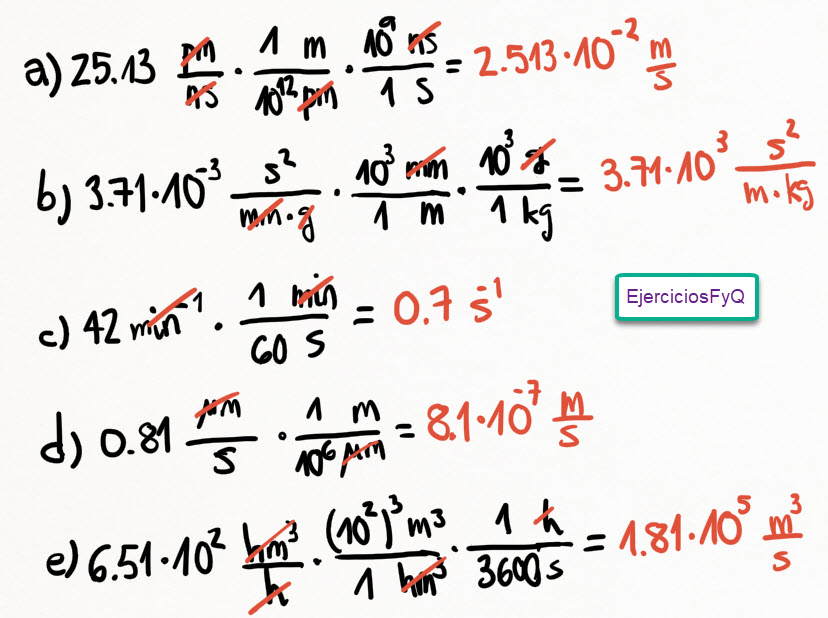 a) 25.13 pm/ns · 1 m/10¹² pm · 10⁹ ns/1 s = 2.513·10⁻² m/s
b) 3.71·10⁻³ s²/mm·g · 10³ mm/1 m · 10³ g/1 kg = 3.71·10³ s²/m·kg
EjerciciosFyQ
c) 42 min⁻¹ · 1 min/60 s = 0.7 s⁻¹
d) 0.81 μm/s · 1 m/10⁶ μm = 8.1·10⁻⁷ m/s
e) 6.51·10² hm³/h · (10²)³ m³/1 hm³ · 1 h/3600 s = 1.81·10⁵ m³/s